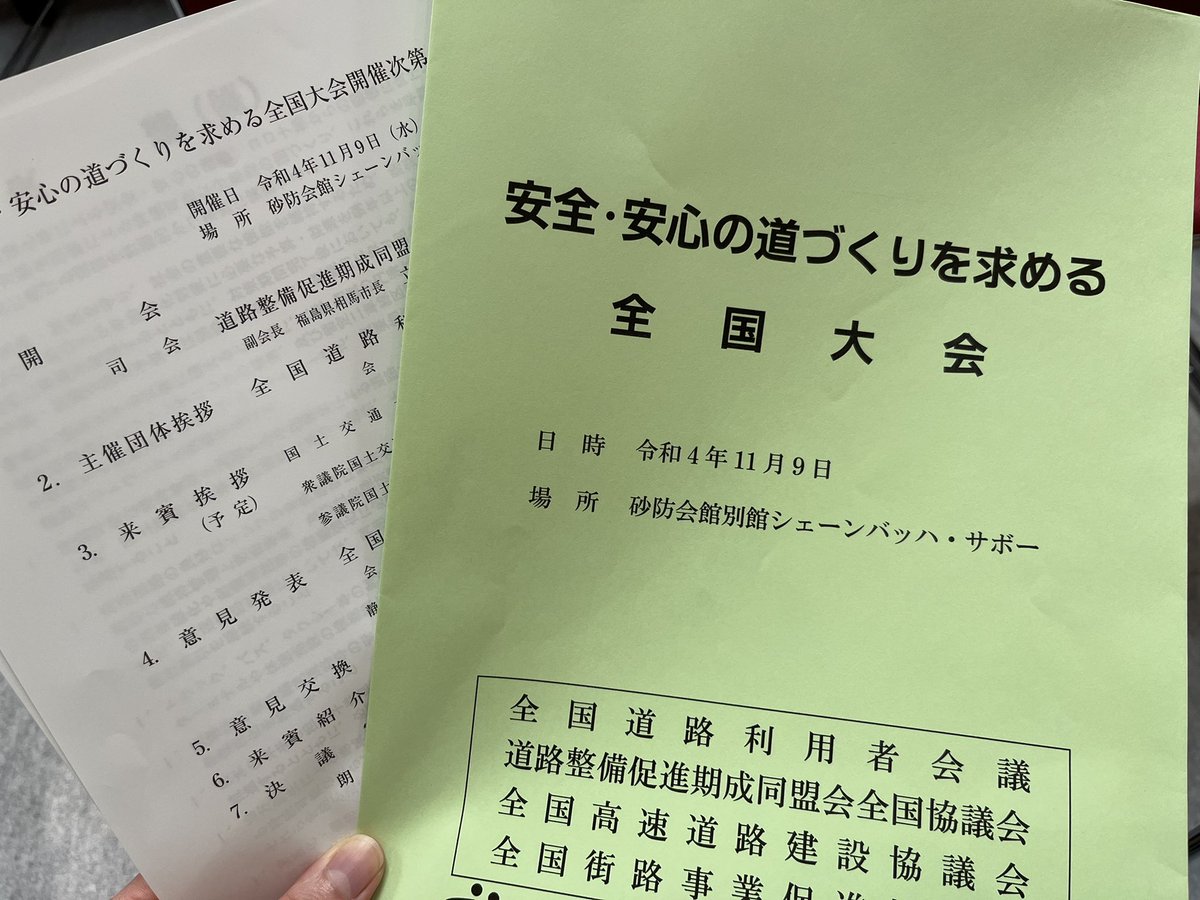 安心の道づくりを求める全国大会開催次第
開催日 令和4年11月9日（水）
場所 砂防会館シェーンバッ
開会
司会 道路整備促進期成同盟
副会長 福島県相馬市長
2. 主催団体挨拶 全国道路利
会
3. 来賓挨拶 国土交通
(予定) 衆議院国土交
参議院国土
4. 意見発表 全国
会
静
5. 意見交換
6. 来賓紹介
7. 決議
朗
安全・安心の道づくりを求める
全国大会
日時 令和4年11月9日
場所 砂防会館別館シェーンバッハ・サボー
全国道路利用者会議
道路整備促進期成同盟会全国協議会
全国高速道路建設協議会
全国街路事業促進